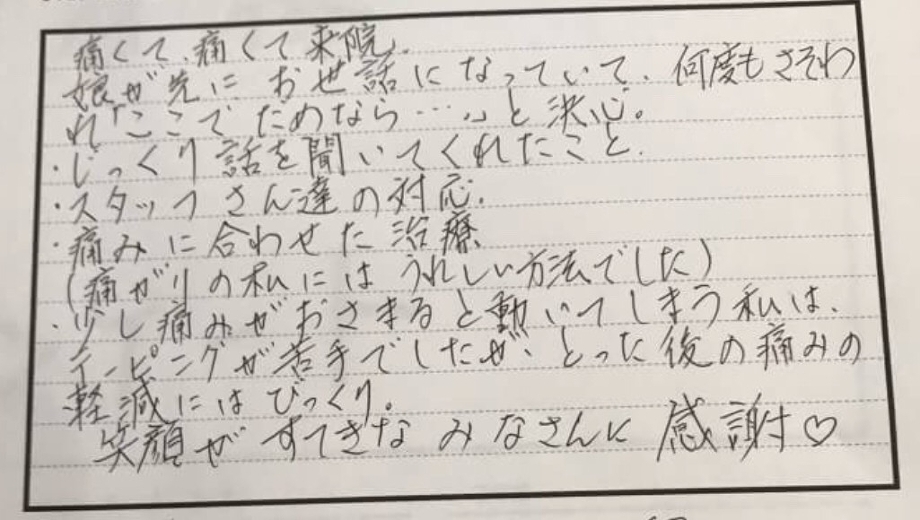 痛くて、痛くて来院。
娘が先に、お世話になっていて、何度もさそわ
れ「ここでだめなら…。」と決心。
・じっくり話を聞いてくれたこと。
・スタッフさん達の対応。
・痛みに合わせた治療
(痛がりの私にはうれしい方法でした)
・少し痛みがおさまると動いてしまう私は、
テーピングが苦手でしたが、とった後の痛みの
軽減にはびっくり。
笑顔がすてきなみなさんに感謝♡